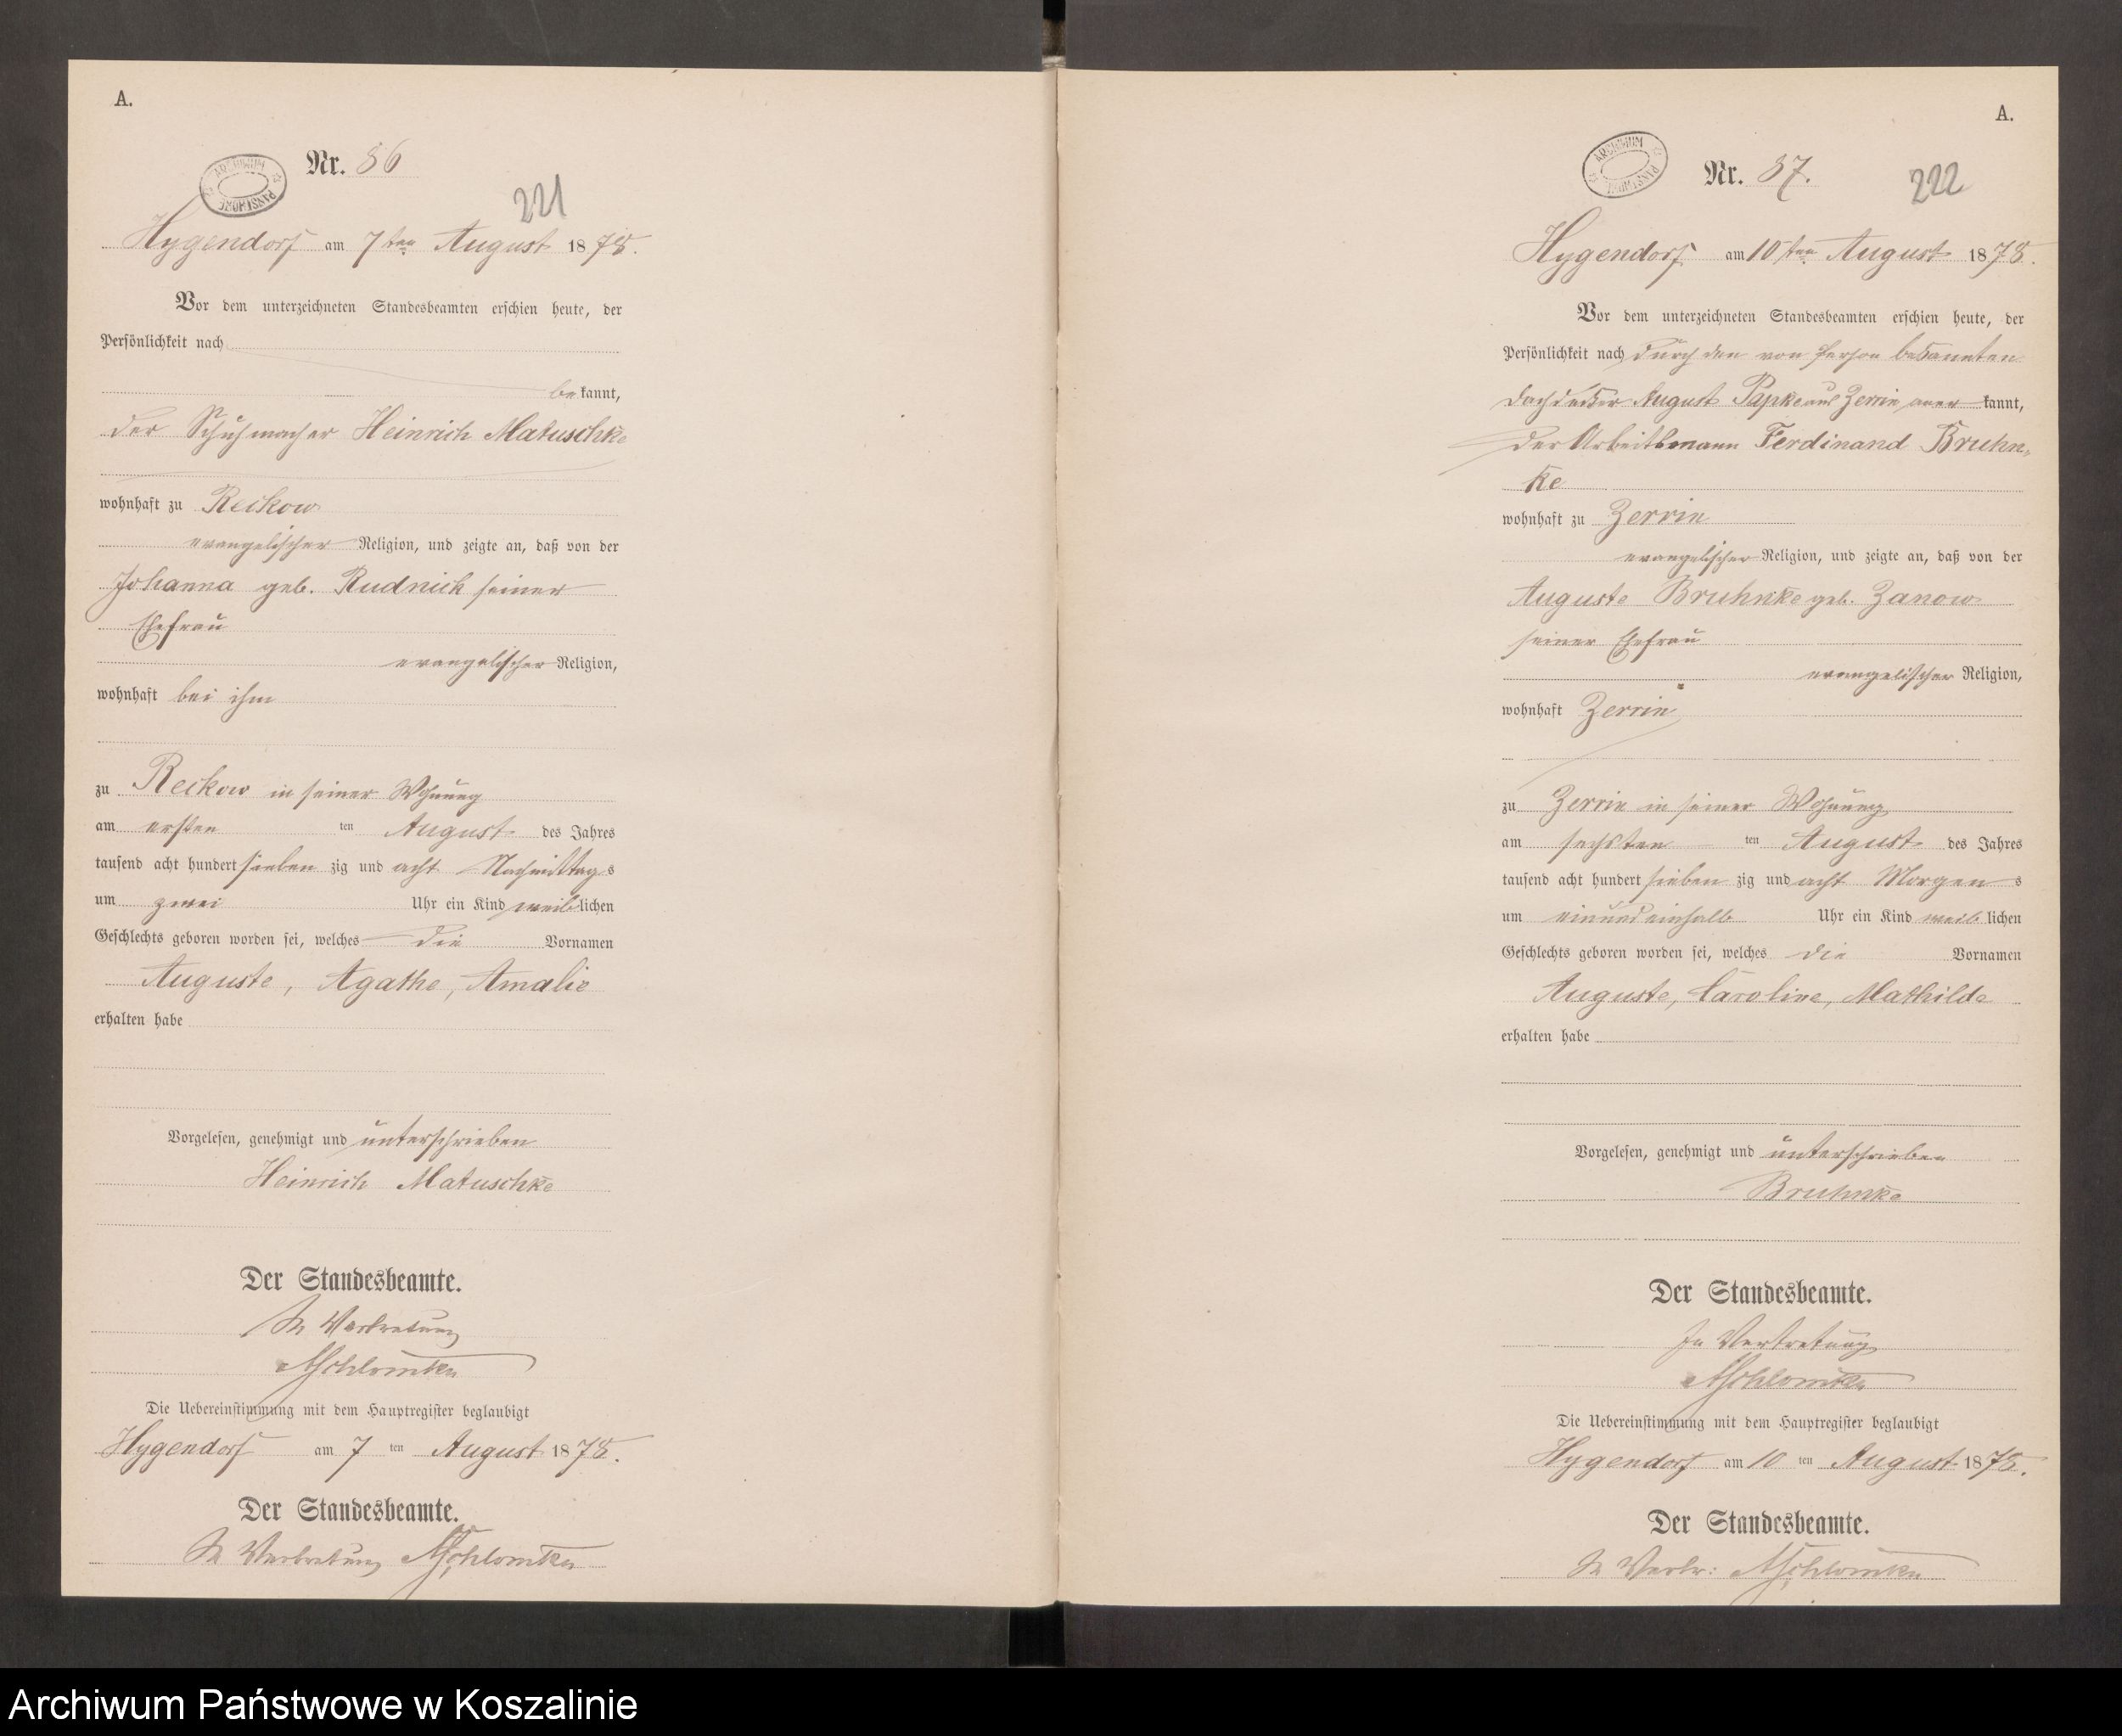 A.
Nr. 86
ARCHIWUM PAŃSTWOWE
221
Hygendorf am 7ten August 1878.
Vor dem unterzeichneten Standesbeamten erschien heute, der
Persönlichkeit nach
bekannt,
der Schuhmacher Heinrich Matuschke
wohnhaft zu Reckow
evangelischer Religion, und zeigte an, daß von der
Johanna geb. Rudnick seiner
Ehefrau
evangelischer Religion,
wohnhaft bei ihm
zu Reckow in seiner Wohnung
am ersten ten August des Jahres
tausend acht hundert sieben zig und acht Nachmittags
um zwei Uhr ein Kind weiblichen
Geschlechts geboren worden sei, welches die Vornamen
Auguste, Agathe, Amalie
erhalten habe
Vorgelesen, genehmigt und unterschrieben
Heinrich Matuschke
Der Standesbeamte.
In Vertretung
Die Uebereinstimmung mit dem Hauptregister beglaubigt
Hygendorf am 7 ten August 1878.
Der Standesbeamte.
In Vertretung
A.
Nr. 87.
ARCHIWUM PAŃSTWOWE
222
Hygendorf am 10ten August 1878.
Vor dem unterzeichneten Standesbeamten erschien heute, der
Persönlichkeit nach durch den von Person bekannten
Dachdecker August Papke aus Zerrin anerkannt,
der Arbeitsmann Ferdinand Bruhn-
ke
wohnhaft zu Zerrin
evangelischer Religion, und zeigte an, daß von der
Auguste Bruhnke geb. Zanow
seiner Ehefrau
evangelischer Religion,
wohnhaft Zerrin
zu Zerrin in seiner Wohnung
am sechsten ten August des Jahres
tausend acht hundert sieben zig und acht Morgens
um einundeinhalb Uhr ein Kind weiblichen
Geschlechts geboren worden sei, welches die Vornamen
Auguste, Caroline, Mathilde
erhalten habe
Vorgelesen, genehmigt und unterschrieben
Bruhnke
Der Standesbeamte.
In Vertretung
Die Uebereinstimmung mit dem Hauptregister beglaubigt
Hygendorf am 10 ten August 1878.
Der Standesbeamte.
In Vertr:
Archiwum Państwowe w Koszalinie